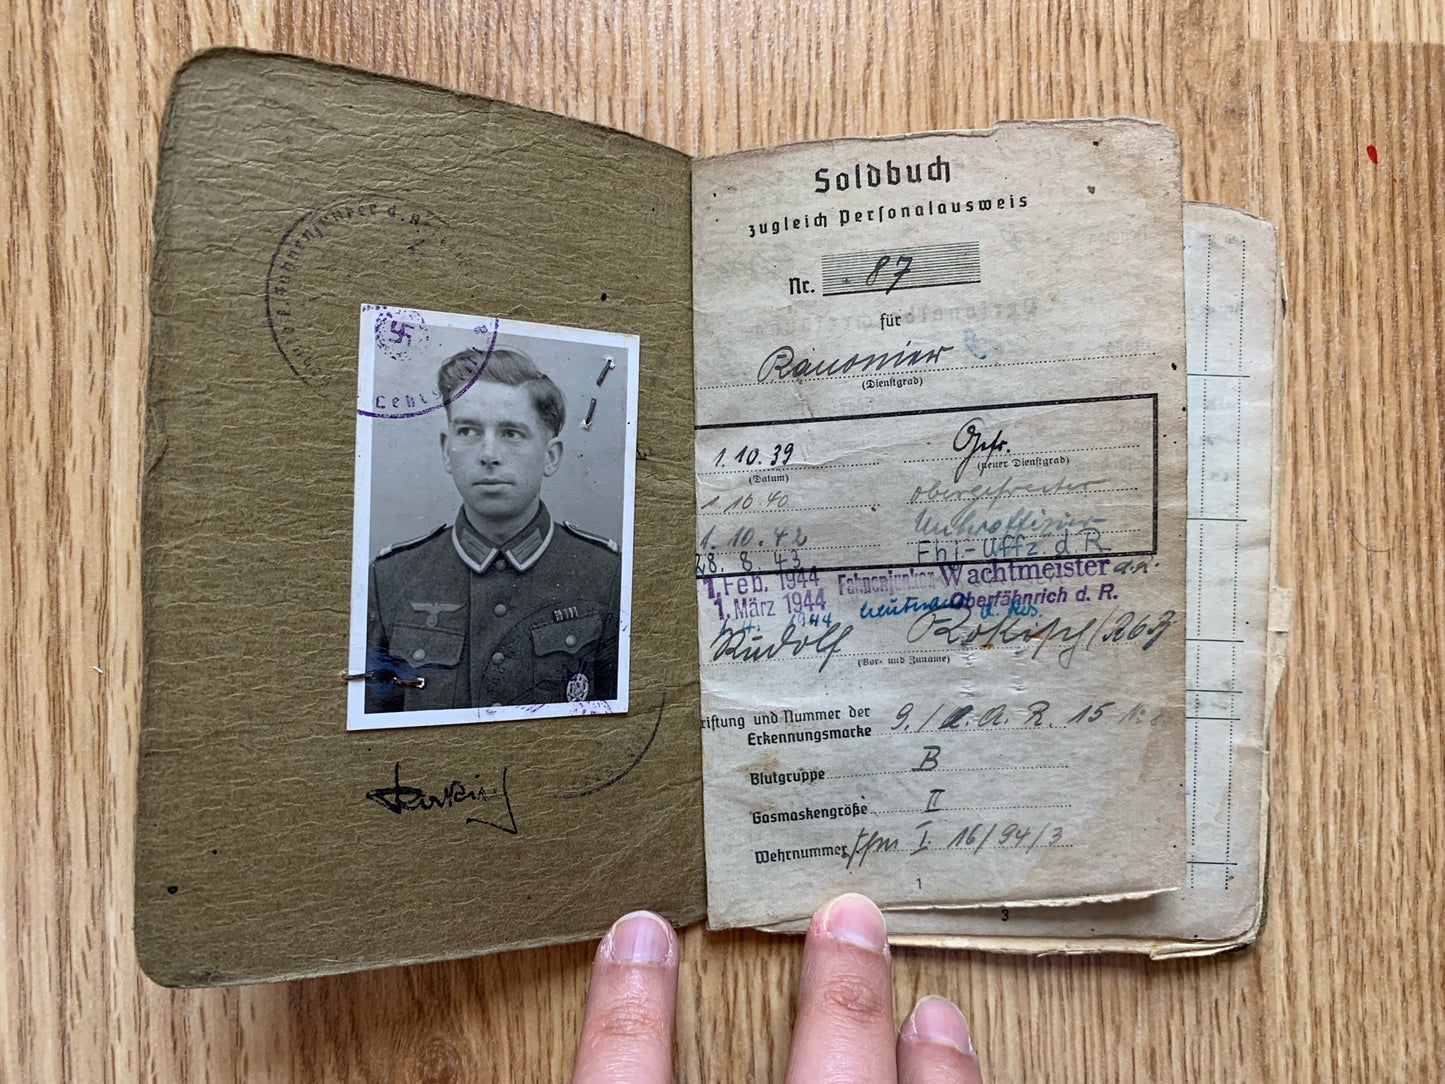 Lehrg
Soldbuch
zugleich Personalausweis
Nr. 87
für
Kanonier
(Dienstgrad)
1.10.39 Gefr.
(Datum) (neuer Dienstgrad)
1.10.40 Obergefreiter
1.10.42 Unteroffizier
28.8.43 Fhj.-Uffz. d. R.
1. Feb. 1944 Fahnenjunker Wachtmeister d.R.
1. März 1944 Oberfähnrich d. R.
1944 Leutnant d. Res.
Rudolf
(Vor- und Zuname)
riftung und Nummer der
Erkennungsmarke 9./ A. R. 15
Blutgruppe B
Gasmaskengröße II
Wehrnummer I. 16/94/3
1
3